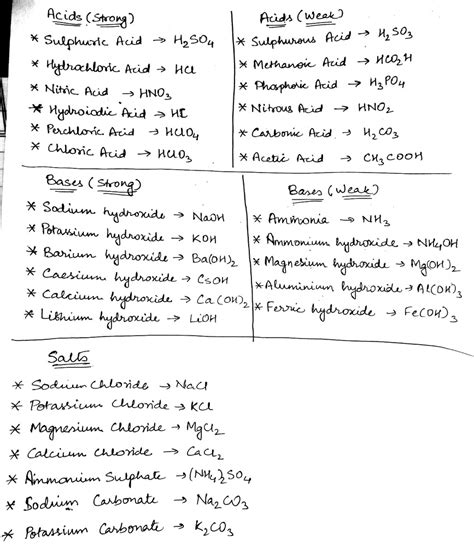 Acids (Strong)
* Sulphuric Acid → H2SO4
* Hydrochloric Acid → HCl
* Nitric Acid → HNO3
* Hydroiodic Acid → HI
* Perchloric Acid → HClO4
* Chloric Acid → HClO3
Acids (Weak)
* Sulphurous Acid → H2SO3
* Methanoic Acid → HCO2H
* Phosphoric Acid → H3PO4
* Nitrous Acid → HNO2
* Carbonic Acid → H2CO3
* Acetic Acid → CH3COOH
Bases (Strong)
* Sodium hydroxide → NaOH
* Potassium hydroxide → KOH
* Barium hydroxide → Ba(OH)2
* Caesium hydroxide → CsOH
* Calcium hydroxide → Ca(OH)2
* Lithium hydroxide → LiOH
Bases (Weak)
* Ammonia → NH3
* Ammonium hydroxide → NH4OH
* Magnesium hydroxide → Mg(OH)2
* Aluminium hydroxide → Al(OH)3
* Ferric hydroxide → Fe(OH)3
Salts
* Sodium Chloride → NaCl
* Potassium Chloride → KCl
* Magnesium Chloride → MgCl2
* Calcium Chloride → CaCl2
* Ammonium Sulphate → (NH4)2SO4
* Sodium Carbonate → Na2CO3
* Potassium Carbonate → K2CO3